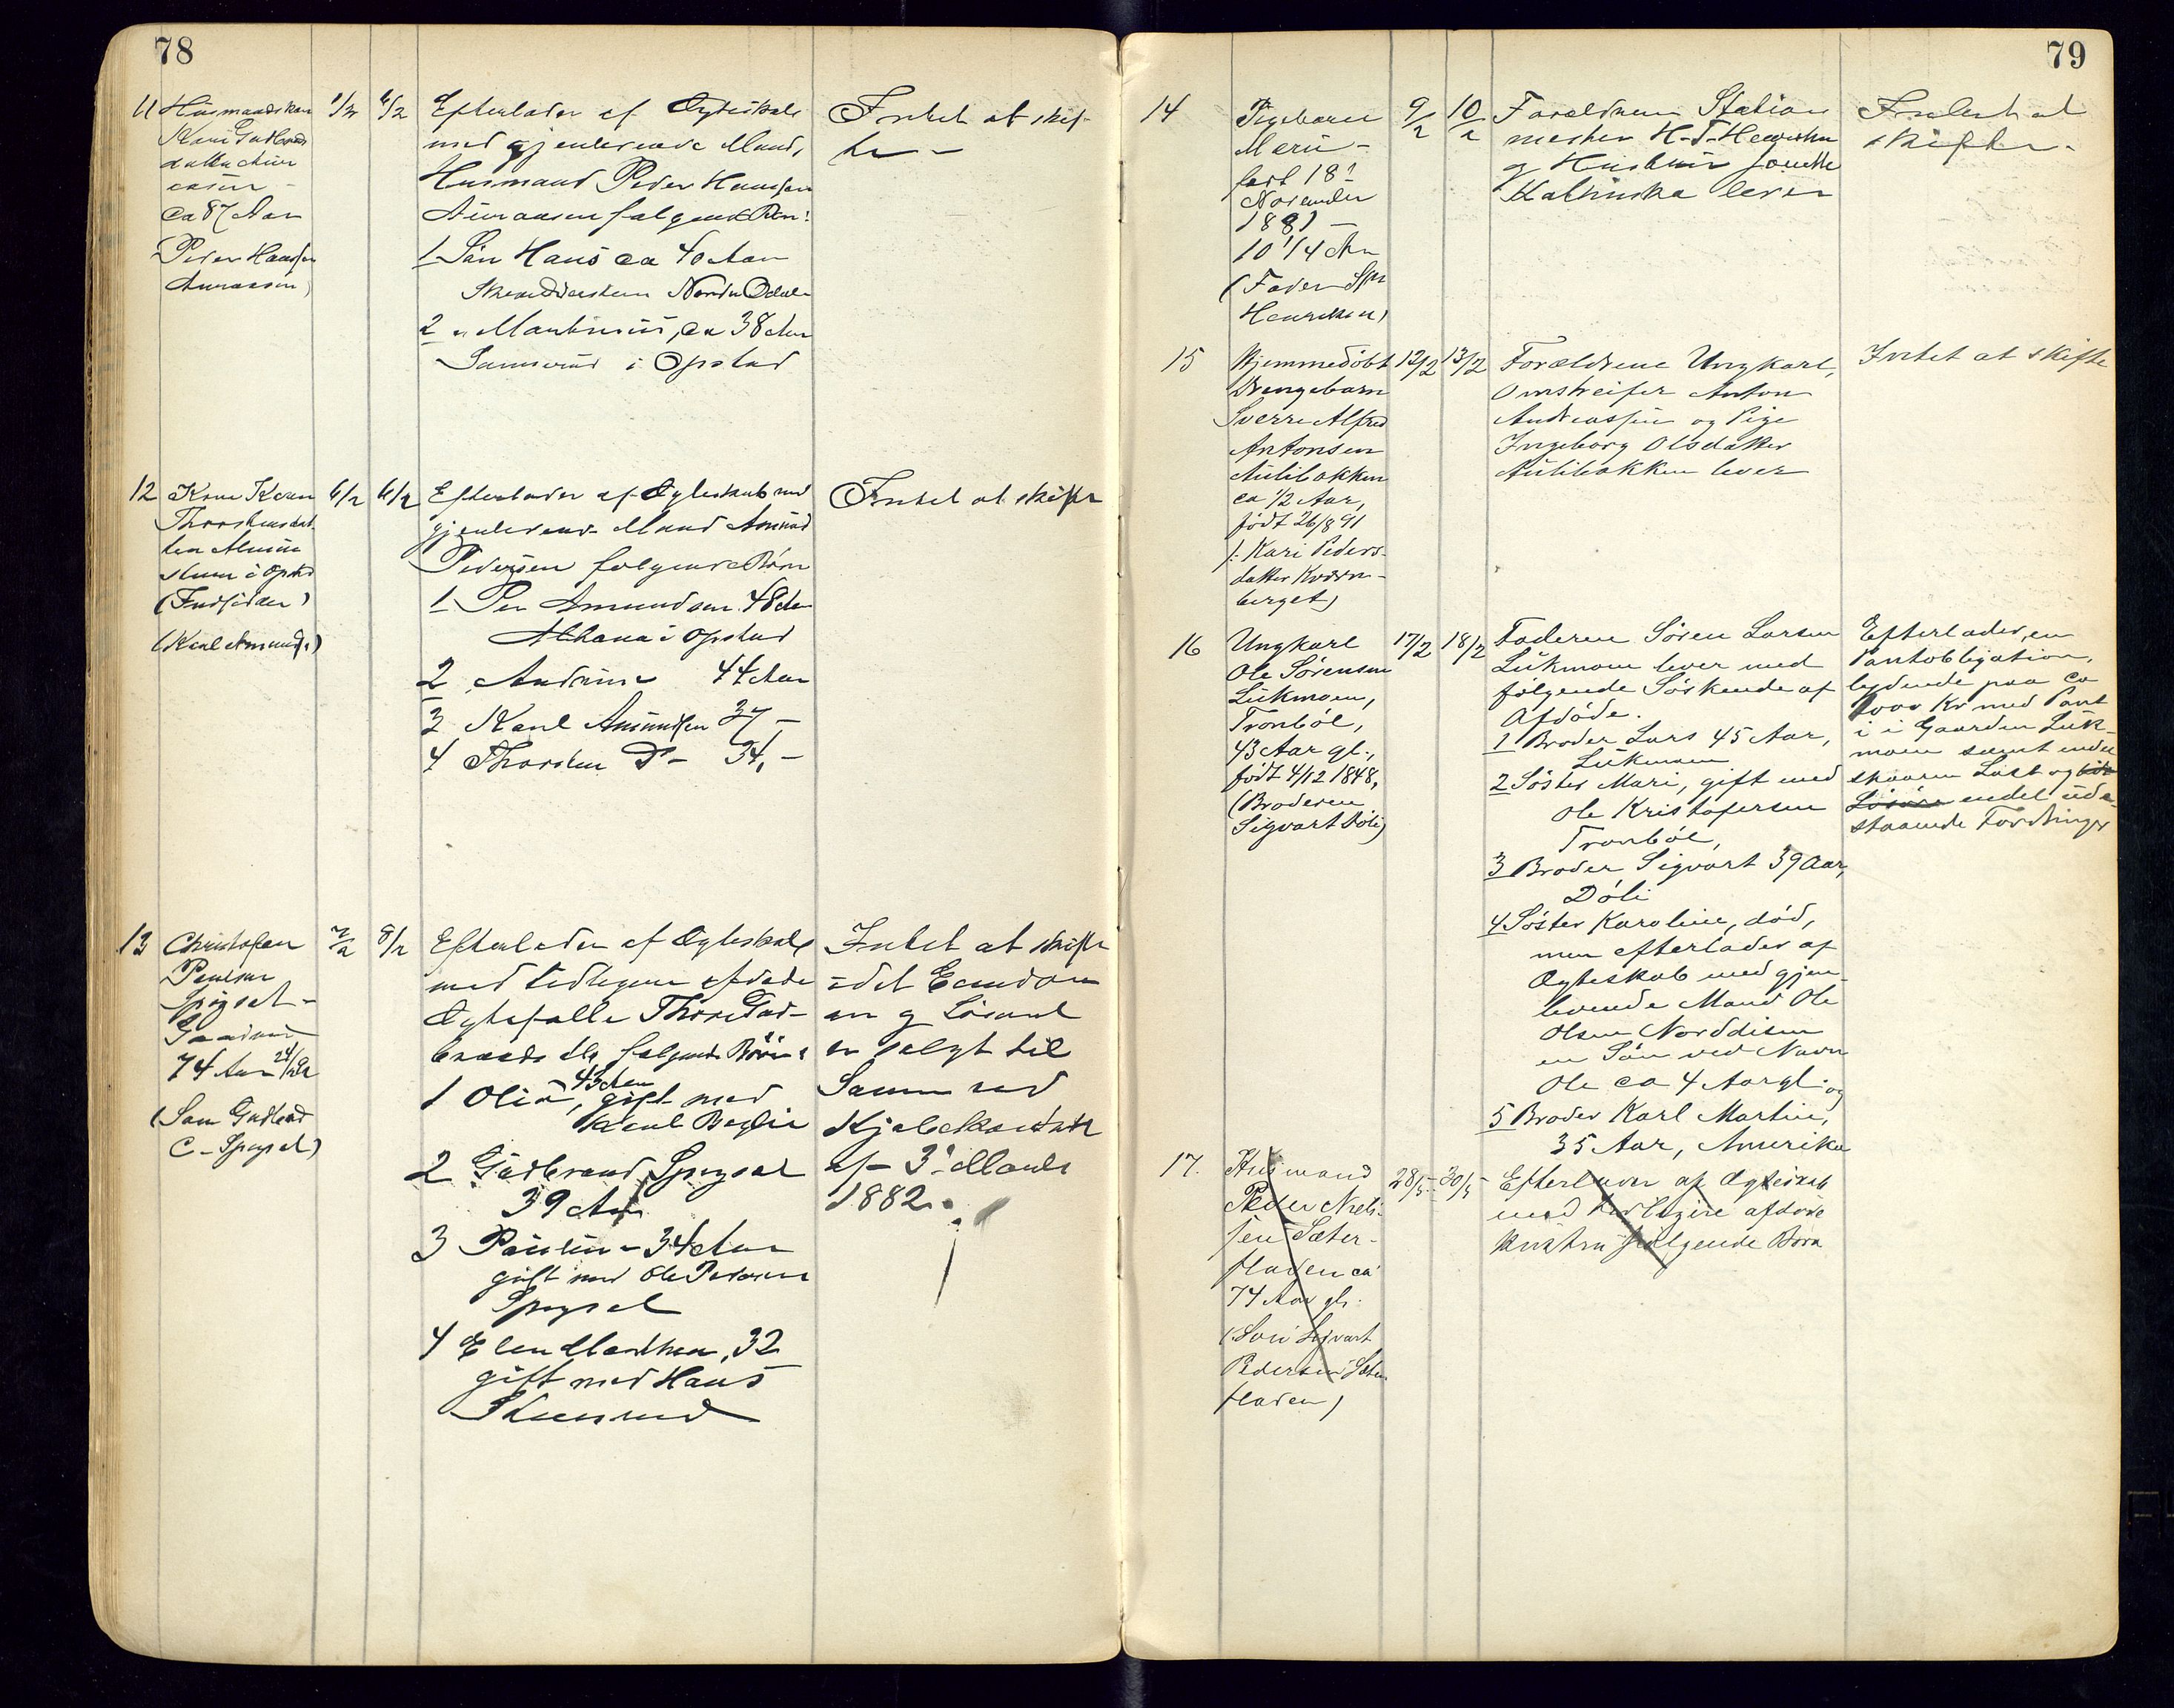 78
11
Husmandskone
Kari Gudbrands
datter
ca 87 Aar
Peder Hanssen
1/2
6/2
Efterlader af Ægteskab
med gjenlevende Mand,
Husmand Peder Hanssen
følgende Børn:
1 Søn Hans ca 40 Aar
Nordre Odalen
2 " Martinius, ca 38 Aar
i Opstad
Intet at skif-
te -
12
Kone Karen
Thorstensdat
ter
i Opstad
(Indsidder)
(Karl Amunds.)
4/2
6/2
Efterlader af Ægteskab med
gjenlevende Mand Amund
Pedersen følgende Børn
1 Per Amundsen 48 Aar
i Opstad
2 44 Aar
3 Karl Amundsen 37 -
4 Thorsten Do - 34, -
Intet at skifte
13
Christofer
Paulsen
Spigset -
Gaardmd
74 Aar
(Søn Gudbrand
C. Spigset)
2/2
8/2
Efterlader af Ægteskab
med tidligere afdøde
Ægtefælle Thore Gud-
brandsdtr følgende Børn:
43 Aar
1 Olia, gift med
Karl
2 Gudbrand Spigset
39 Aar
3 Pauline 34 Aar
gift med Ole Pedersen
Spigset
4 Elen Marthea, 32
gift med Hans
Intet at skifte
idet Eiendom
en og Løsøret
er solgt til
Sønnen ved
Kjøbekontrakt
af 3 Marts
1882.
79
14
Pigebarn
Marie -
født 18
November
1881 -
10 1/4 Aar
(Faderen
Henriksen)
9/2
10/2
Forældrene Station
mester H. Henriksen
og Hustru
lever
Intet at
skifte.
15
Hjemmedøbt
Drengebarn
Sverre Alfred
Antonsen
Aulibakken
ca 1/2 Aar,
født 26/8 91
/: Kari Peders-
datter Kværn-
berget)
12/2
13/2
Forældrene Ungkarl,
Omstreifer Anton
Andreassen og Pige
Ingeborg Olsdatter
Aulibakken lever
Intet at skifte
16
Ungkarl
Ole Sørensen
Lukmoen,
Tronbøl,
43 Aar gl.,
født 4/12 1848,
(Broderen
Sigvart Døli)
17/2
18/2
Faderen Søren Larsen
Lukmoen lever med
følgende Søskende af
Afdøde.
1 Broder Lars 45 Aar,
Lukmoen
2 Søster Mari, gift med
Ole Kristofersen
Tronbøl,
3 Broder Sigvart 39 Aar,
Døli
4 Søster Karoline, død,
men efterlader af
Ægteskab med gjen-
levende Mand Ole
Olsen Norddisen
en Søn ved Navn
Ole ca 4 Aar gl. og
5 Broder Karl Martin,
35 Aar, Amerika
Efterlader en
Pantobligation,
lydende paa ca
1000 Kr med Pant
i i Gaarden Luk-
moen samt
Løsøre endel ude-
staaende Fordringer
17.
Husmand
Peder Niels-
sen Sæter-
fladen ca
74 Aar gl.
(Søn Sigvart
Pedersen Sæter
fladen)
28/5
30/5
Efterlever af Ægteskab
med tidligere afdøde
Hustru følgende Børn